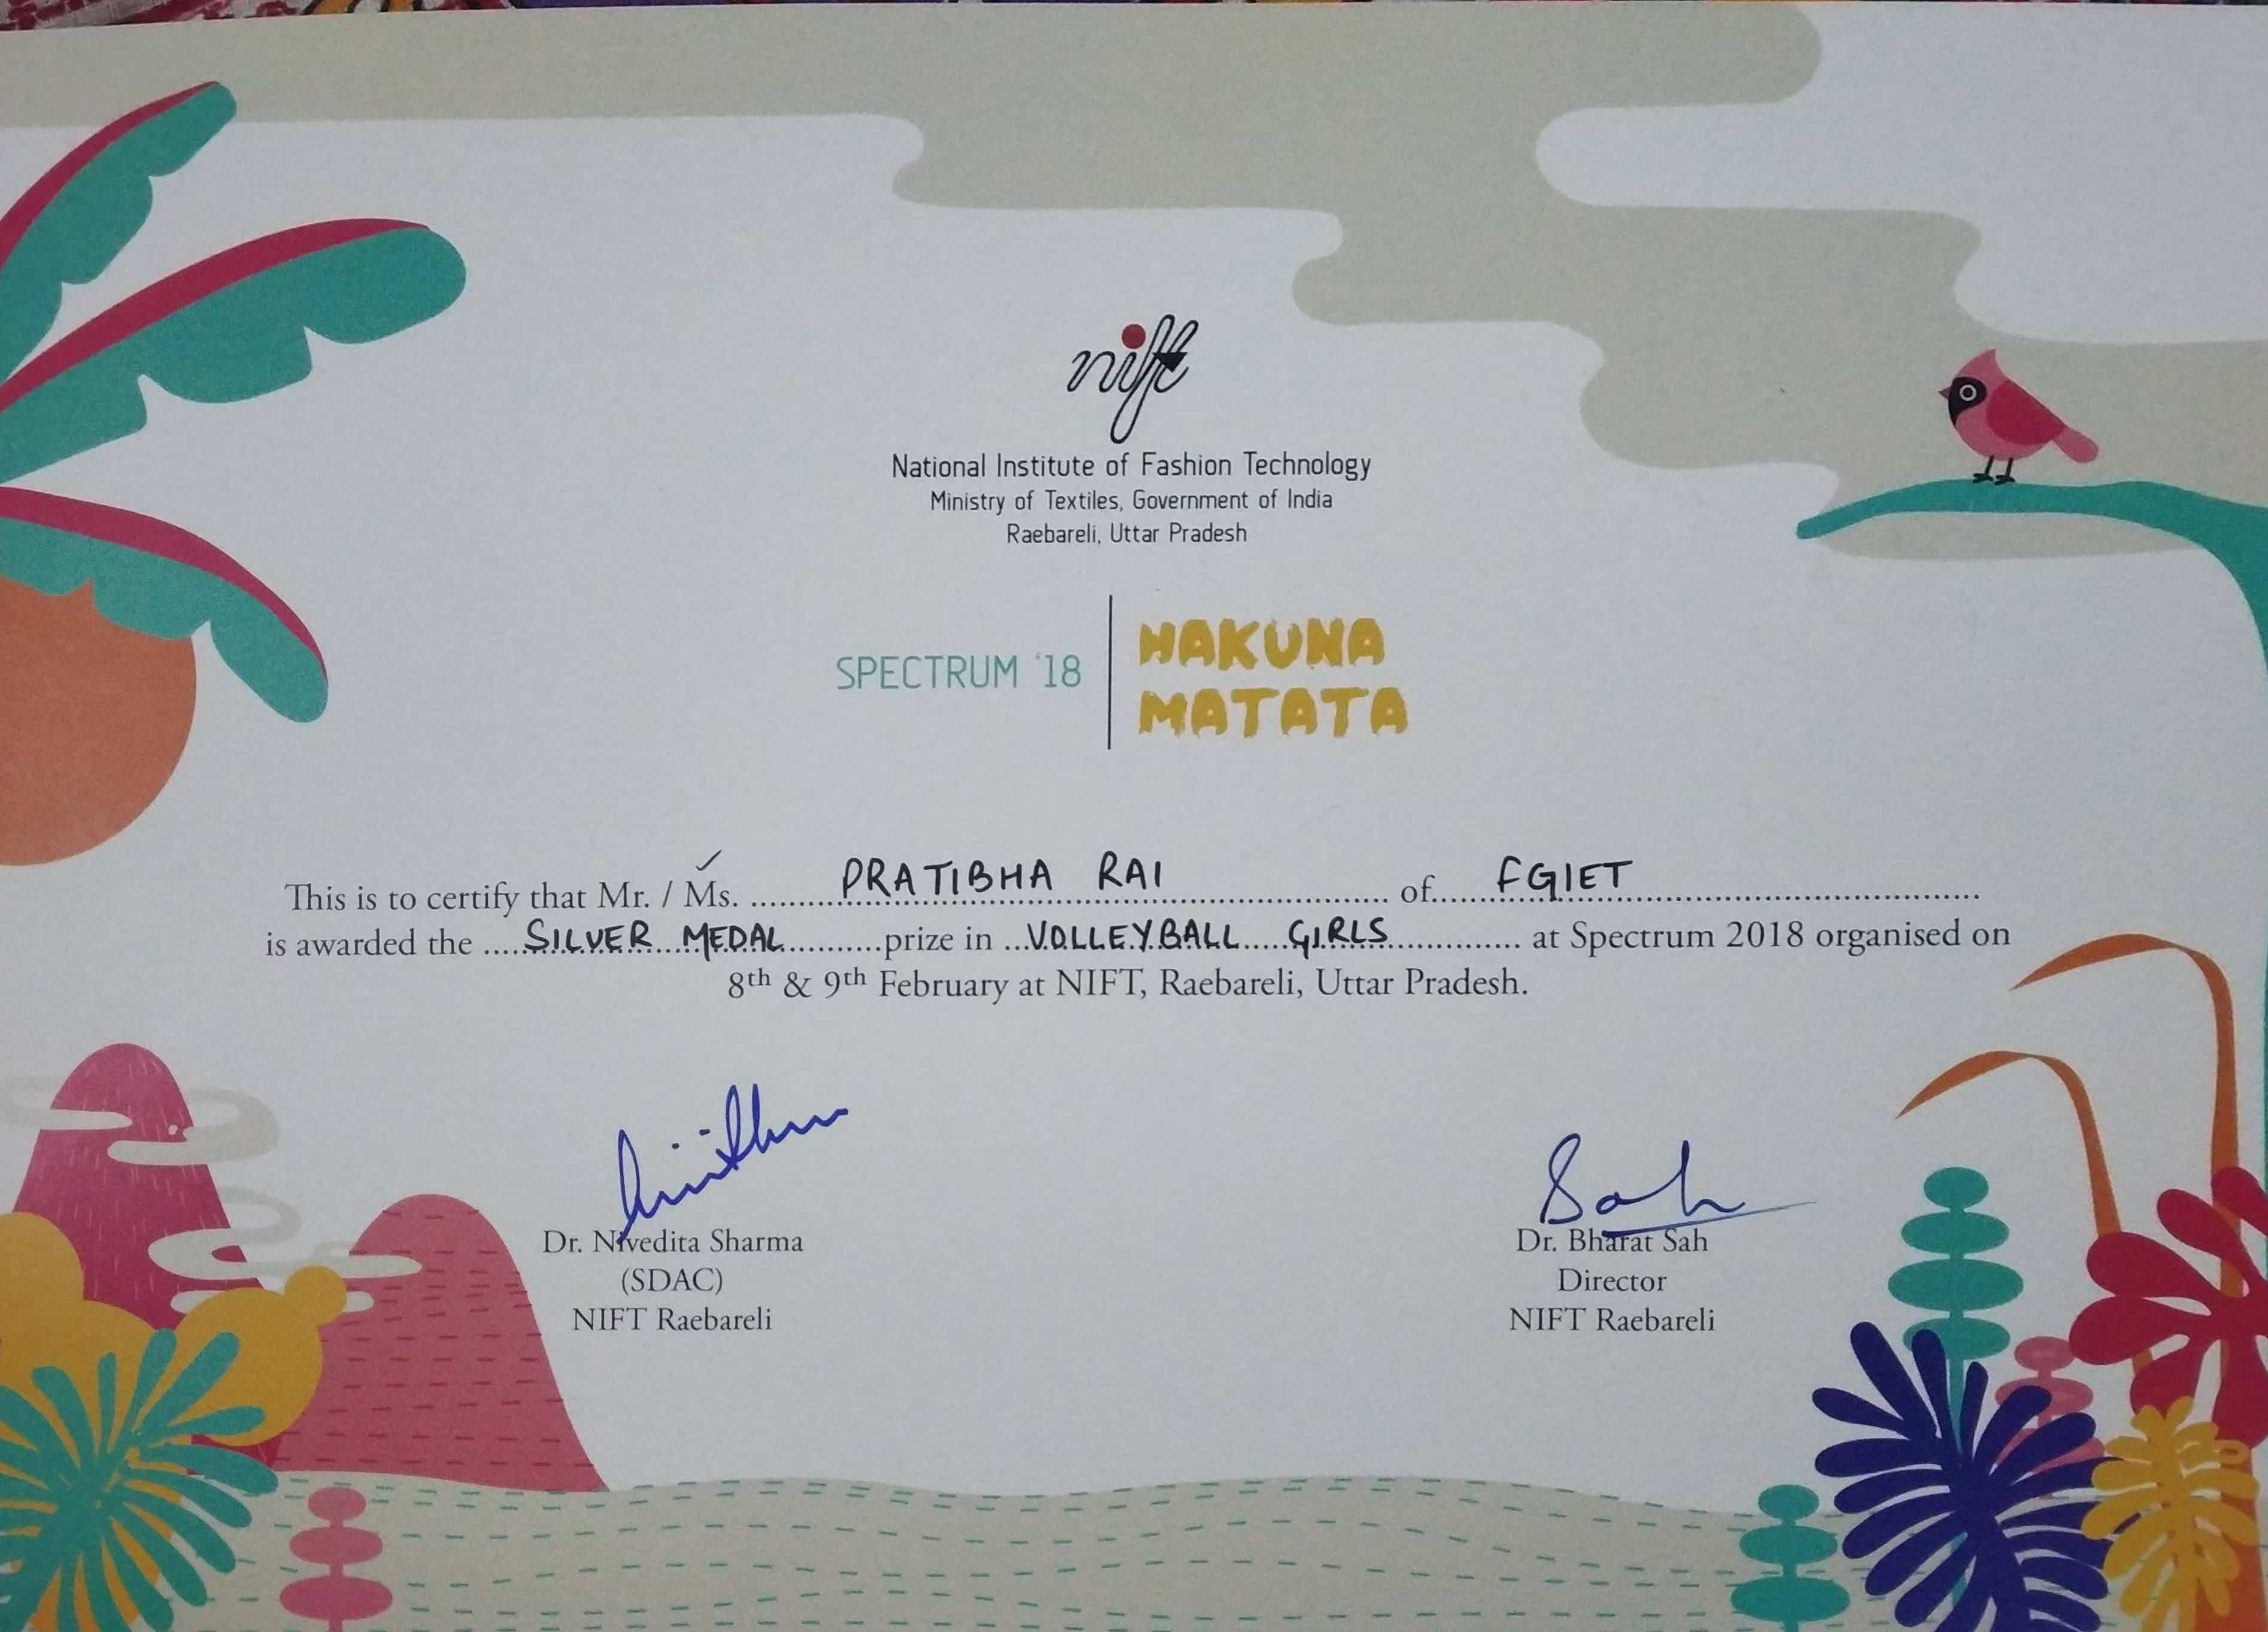 nift
National Institute of Fashion Technology
Ministry of Textiles, Government of India
Raebareli, Uttar Pradesh
SPECTRUM '18
HAKUNA
MATATA
This is to certify that Mr. / Ms. .......... PRATIBHA RAI .......... of .......... FGIET ..........
is awarded the .......... SILVER MEDAL .......... prize in .......... VOLLEYBALL GIRLS .......... at Spectrum 2018 organised on
8th & 9th February at NIFT, Raebareli, Uttar Pradesh.
Dr. Nivedita Sharma
(SDAC)
NIFT Raebareli
Sah
Dr. Bharat Sah
Director
NIFT Raebareli